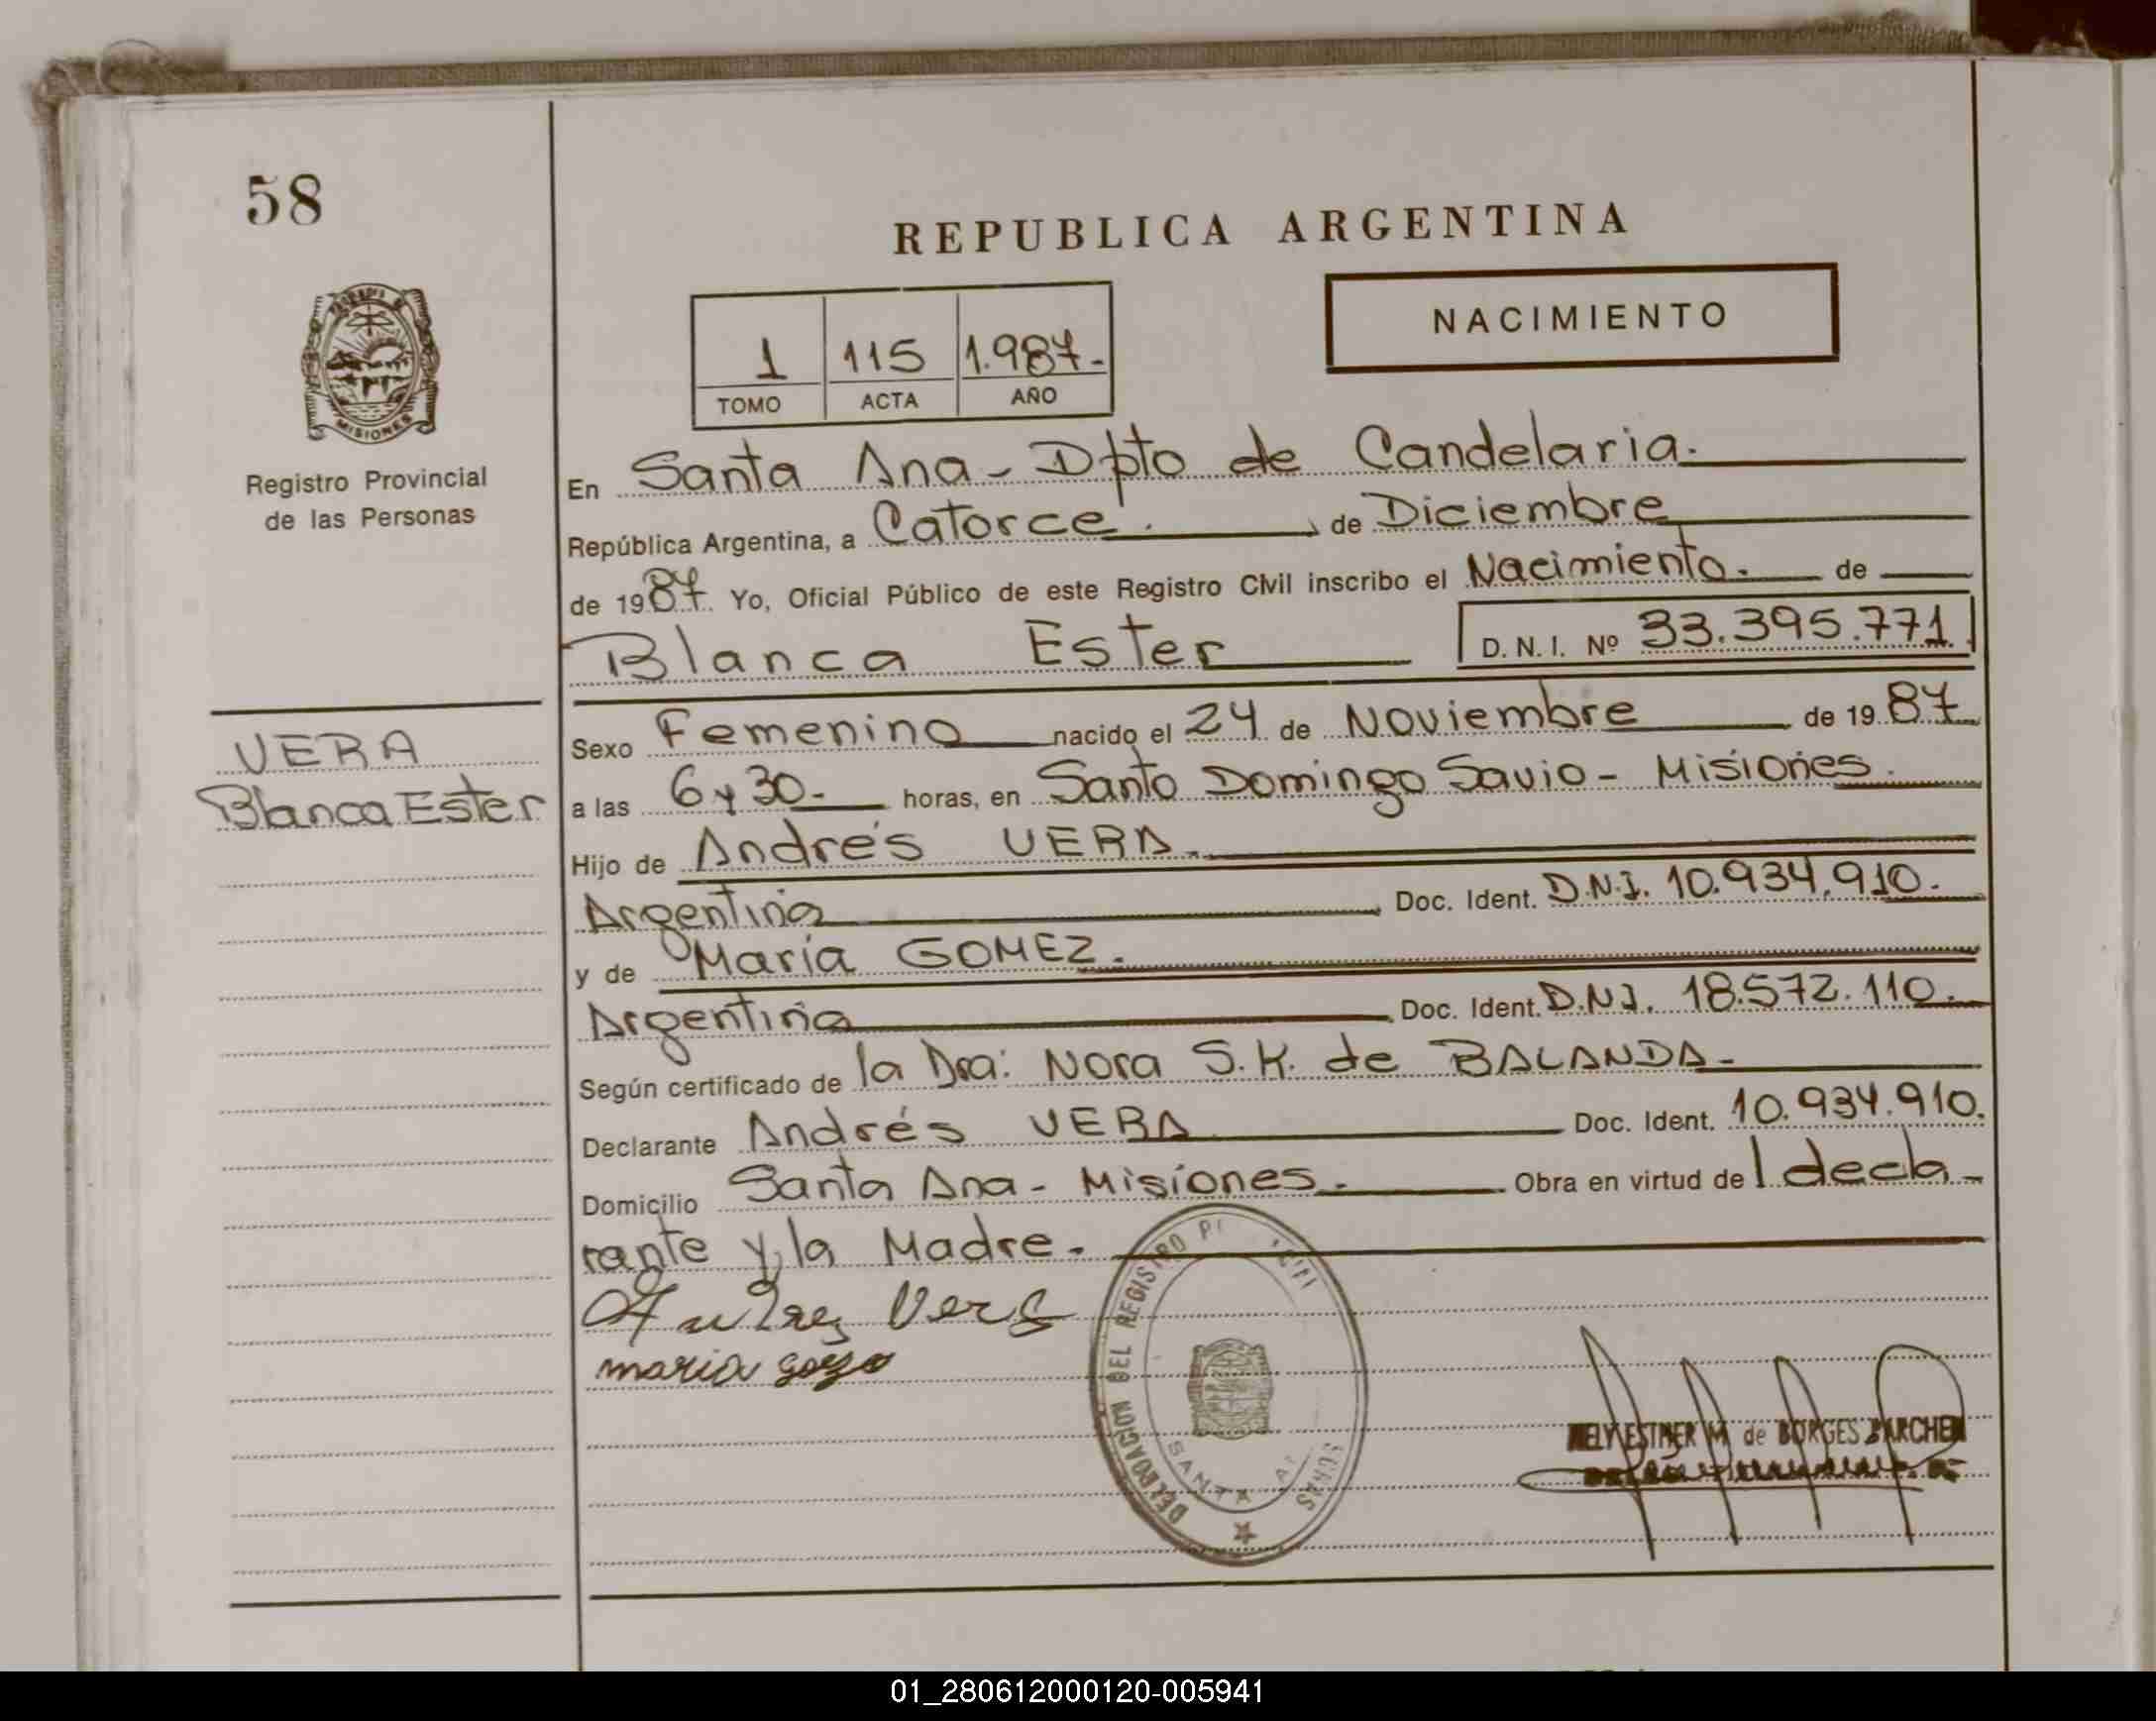 58
REPUBLICA ARGENTINA
NACIMIENTO
1 115 1.987-
TOMO ACTA AÑO
MISIONES
Registro Provincial
de las Personas
En Santa Ana - Dpto de Candelaria.
República Argentina, a Catorce. de Diciembre
de 1987. Yo, Oficial Público de este Registro Civil inscribo el Nacimiento. de
Blanca Ester D. N. I. Nº 33.395.771
VERA
Blanca Ester
Sexo Femenino nacido el 24 de Noviembre de 1987
a las 6 y 30. horas, en Santo Domingo Savio - Misiones.
Hijo de Andrés VERA.
Argentina Doc. Ident. D.N.I. 10.934.910.
y de María GOMEZ.
Argentina Doc. Ident. D.N.I. 18.572.110.
Según certificado de la Dra: Nora S.K. de BALANDA-
Declarante Andrés VERA Doc. Ident. 10.934.910.
Domicilio Santa Ana - Misiones. Obra en virtud de l decla-
rante y la Madre.
Vera
maria
DELEGACION DEL REGISTRO
SANTA
ESTHER M. de BORGES
01_280612000120-005941